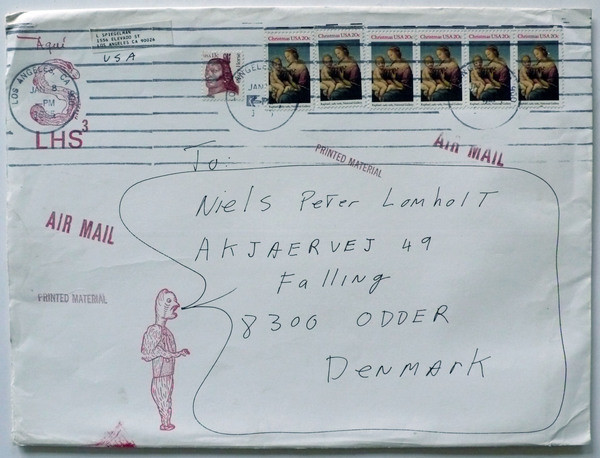 Aquí
L SPIEGELMAN
1556 ELEVADO ST
LOS ANGELES CA 90026
USA
LOS ANGELES, CA
JAN
PM
LHS3
USA 13c
Crazy Horse
Christmas USA 20c
Christmas USA 20c
Christmas USA 20c
Christmas USA 20c
Christmas USA 20c
Christmas USA 20c
To:
PRINTED MATERIAL
AIR MAIL
AIR MAIL
PRINTED MATERIAL
Niels Peter Lomholt
AKJAERVEJ 49
Falling
8300 ODDER
DENMARK